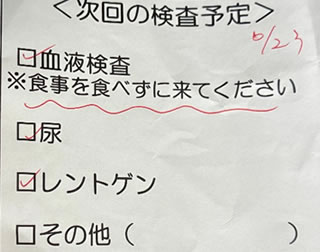 ＜次回の検査予定＞
10/23
☑血液検査
※食事を食べずに来てください
☑尿
☑レントゲン
□その他（　　　　　　）